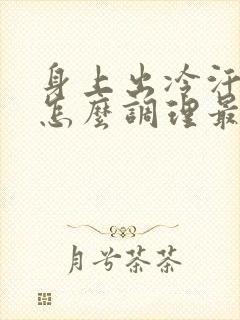 身上出冷汗
怎麼調理最
月兮茶茶